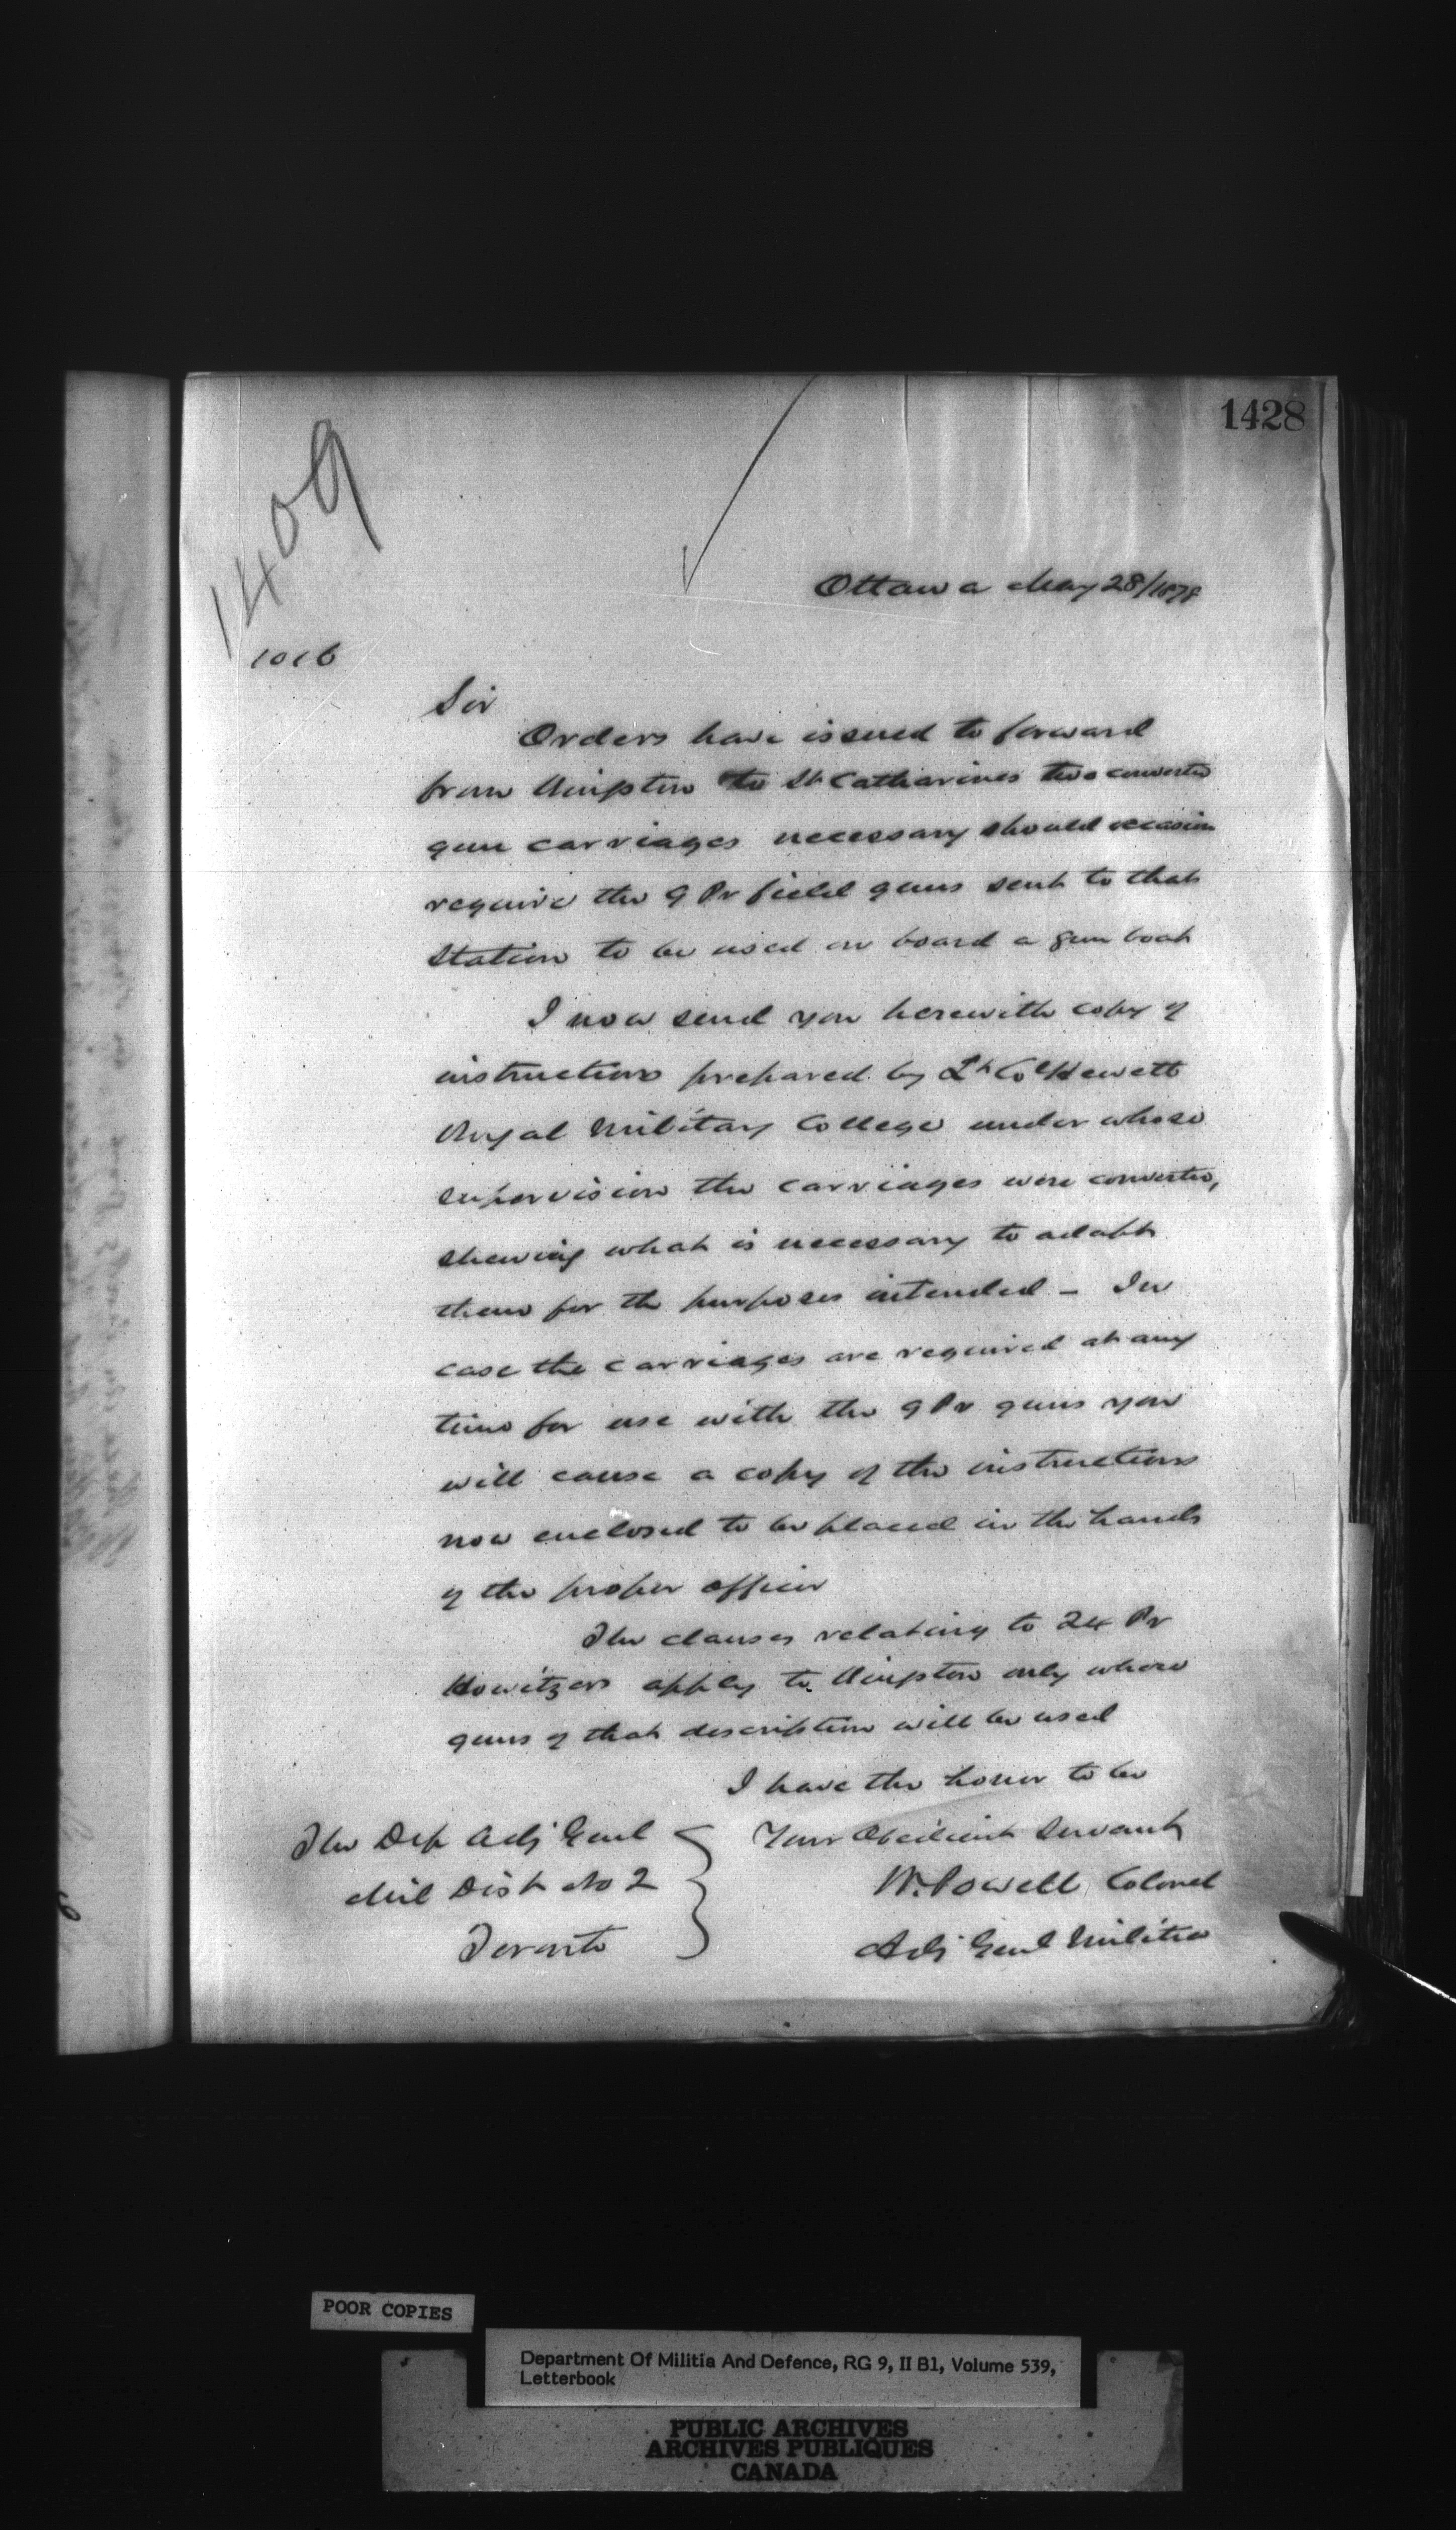 1428
1409
Ottawa May 28/1878
1016
Sir
Orders have issued to forward
from Kingston to St Catharines two converted
gun carriages necessary should occasion
require the 9 Pr field guns sent to that
Station to be used on board a gun boat
I now send you herewith copy of
instructions prepared by Lt Col Hewett
Royal Military College under whose
supervision the carriages were converted,
shewing what is necessary to adapt
them for the purposes intended - In
case the carriages are required at any
time for use with the 9 Pr guns you
will cause a copy of the instructions
now enclosed to be placed in the hands
of the proper officer
The clauses relating to 24 Pr
Howitzers apply to Kingston only where
guns of that description will be used
I have the honor to be
Your Obedient Servant
W. Powell Colonel
Adj Genl Militia
The Dep Adj Genl
Mil Dist No 2
Toronto
POOR COPIES
Department Of Militia And Defence, RG 9, II B1, Volume 539,
Letterbook
PUBLIC ARCHIVES
ARCHIVES PUBLIQUES
CANADA